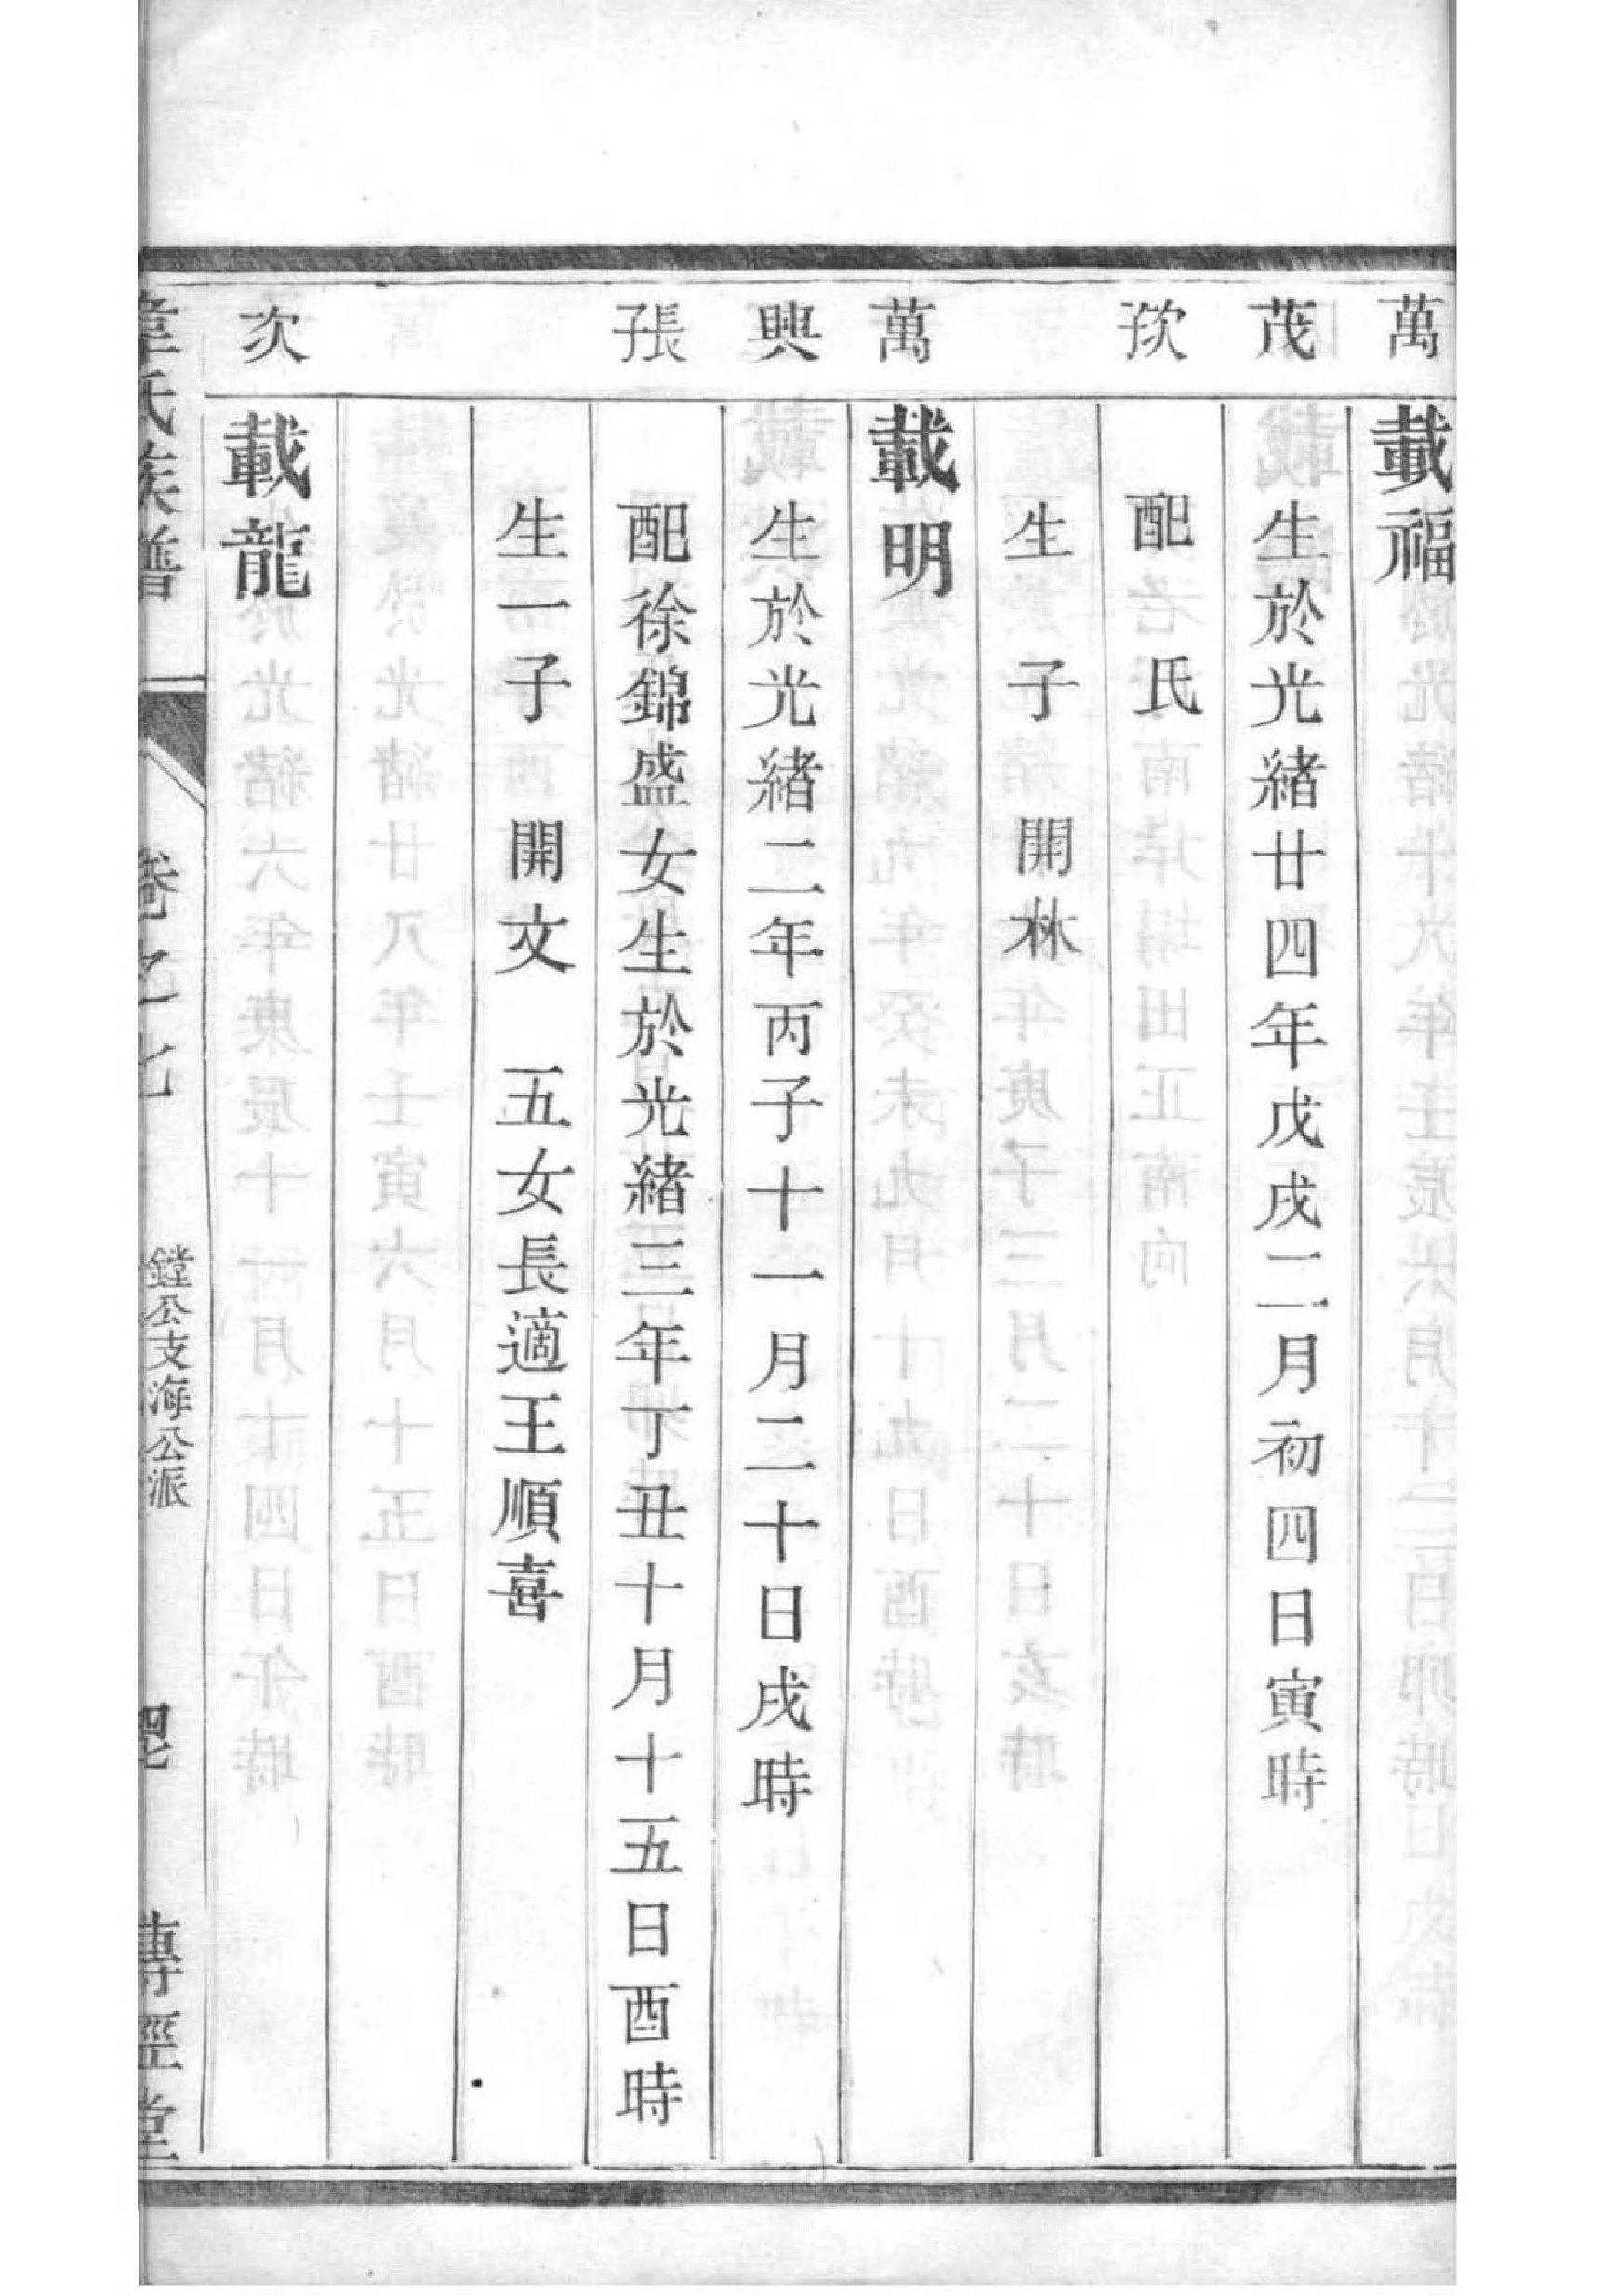 萬
載福
茂
生於光緒廿四年戊戌二月初四日寅時
配 氏
生 子 開林
萬
載明
興
生於光緒二年丙子十一月二十日戌時
張
配徐錦盛女生於光緒三年丁丑十月十五日酉時
生一子 開文 五女長適王順喜
次
載龍
氏族譜
卷之七
鏜公支海公派
傳經堂